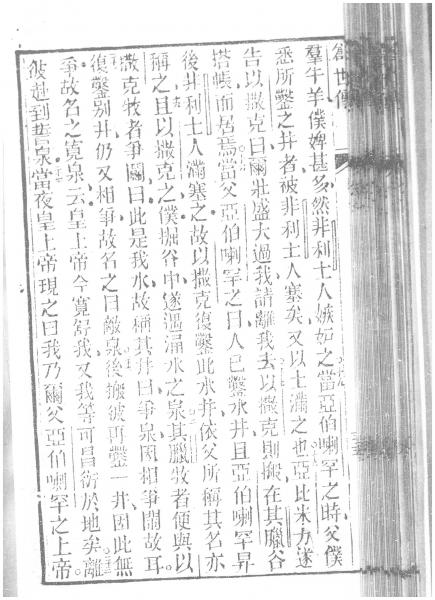 創世傳
羣牛羊僕婢甚多然非利士人嫉妬之當亞伯喇罕之時父僕
悉所鑿之井者被非利士人塞矣又以土滿之也亞比米力遂
告以撒克曰爾壯盛大過我請離我去以撒克則搬在其臘谷
塔帳而居焉當父亞伯喇罕之日人已鑿水井且亞伯喇罕昇
後非利士人滿塞之故以撒克復鑿此水井依父所稱其名亦
稱之且以撒克之僕掘谷中遂遇涌水之泉其臘牧者便與以
撒克牧者爭鬧曰此是我水故稱其井曰爭泉因相爭鬧故耳
復鑿別井仍又相爭故名之曰敵泉後搬彼再鑿一井因此無
爭故名之寬泉云皇上帝今寬舒我又我等可昌衍於地矣離
彼到誓泉當夜皇上帝現之曰我乃爾父亞伯喇罕之上帝